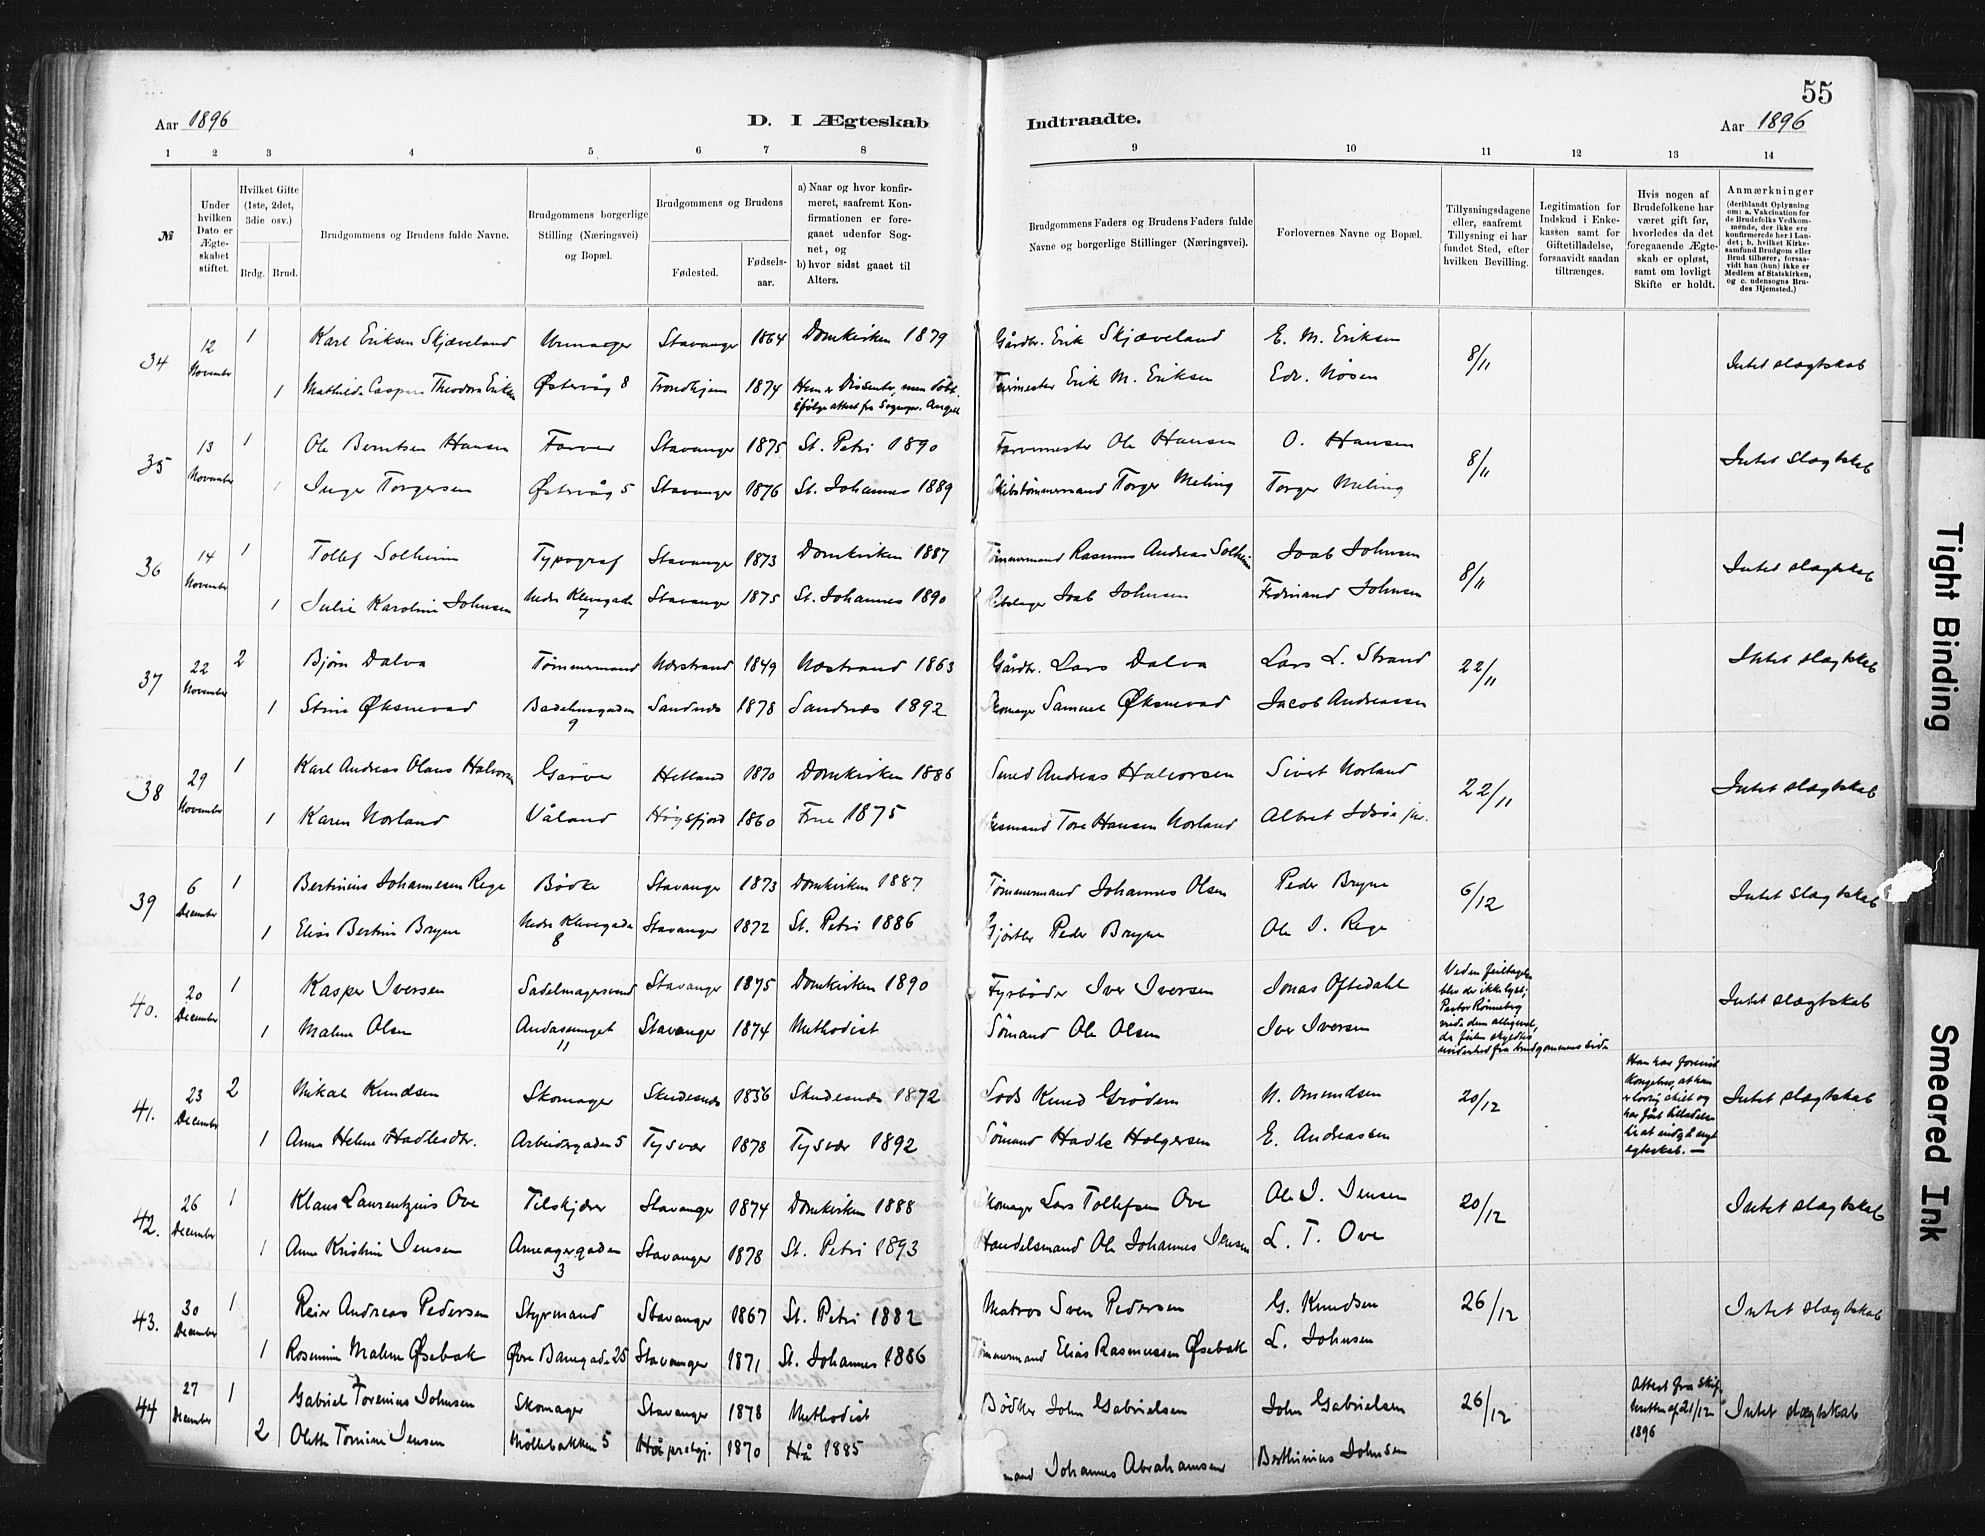 55
Aar 1896
D. I Ægteskab
Indtraadte.
Aar 1896
1 2 3 4 5 6 7 8 9 10 11 12 13 14
№
Under hvilken Dato er Ægteskabet stiftet.
Hvilket Gifte (1ste, 2det, 3die osv.)
Brdg. Brud.
Brudgommens og Brudens fulde Navne.
Brudgommens borgerlige Stilling (Næringsvei) og Bopæl.
Brudgommens og Brudens
Fødested.
Fødselsaar.
a) Naar og hvor konfirmeret, saafremt Konfirmationen er foregaaet udenfor Sognet, og
b) hvor sidst gaaet til Alters.
Brudgommens Faders og Brudens Faders fulde Navne og borgerlige Stillinger (Næringsvei).
Forlovernes Navne og Bopæl.
Tillysningsdagene eller, saafremt Tillysning ei har fundet Sted, efter hvilken Bevilling.
Legitimation for Indskud i Enkekassen samt for Giftetilladelse, forsaavidt saadan tiltrænges.
Hvis nogen af Brudefolkene har været gift før, hvorledes da det foregaaende Ægteskab er opløst, samt om lovligt Skifte er holdt.
Anmærkninger (deriblandt Oplysning om: a. Vakcination for de Brudefolks Vedkommende, der ikke ere konfirmerede her i Landet; b. hvilket Kirkesamfund Brudgom eller Brud tilhører, forsaavidt han (hun) ikke er Medlem af Statskirken, og c. udensogns Brudes Hjemsted.)
34 12 November 1 Karl Eriksen Skjæveland Urmager Stavanger 1864 Domkirken 1879 Gårdbr. Erik Skjæveland E. M. Eriksen 8/11 Intet slægtskab
1 Mathilde Theodora Østervåg 8 Trondhjem 1874 Hun er Dissenter, men døbt ifølge attest fra Erik M. Eriksen Edv. Nøsen
35 13 November 1 Ole Berntsen Hansen Farver Stavanger 1875 St. Petri 1890 Farvemester Ole Hansen O. Hansen 8/11 Intet slægtskab
1 Inger Torgersen Østervåg 5 Stavanger 1876 St. Johannes 1889 Skibstømmermand Torger Meling Torger Meling
36 14 November 1 Tollef Solheim Typograf Stavanger 1873 Domkirken 1887 Tømmermand Rasmus Andreas Solheim Joab Johnsen 8/11 Intet slægtskab
1 Julie Karoline Johnsen Nedre Klevegade 7 Stavanger 1875 St. Johannes 1890 Joab Johnsen Ferdinand Johnsen
37 22 November 2 Bjørn Dalva Tømmermand Nærstrand 1849 Næstrand 1863 Gårdbr. Lars Dalva Lars L. Strand 22/11 Intet slægtskab
1 Stine Øksnevad Badehusgaden 9 Sandnes 1878 Sandnes 1892 Skomager Samuel Øksnevad Jacob Andreassen
38 29 November 1 Karl Andreas Olaus Halvorsen Garver Hetland 1870 Domkirken 1886 Smed Andreas Halvorsen Sivert Norland 22/11 Intet slægtskab
1 Karen Norland Våland Høgsfjord 1860 Frue 1875 Tore Hansen Norland Albret Idsøe jun.
39 6 December 1 Bertinius Johannesen Rege Bødker Stavanger 1873 Domkirken 1887 Tømmermand Johannes Olsen Peder Bryne 6/12 Intet slægtskab
1 Elise Bertine Bryne Nedre Klevegade 8 Stavanger 1872 St. Petri 1886 Gjørtler Peder Bryne Ole J. Rege
40. 20 December 1 Kasper Iversen Sadelmagersvend Stavanger 1875 Domkirken 1890 Fyrbøder Iver Iversen Jonas Oftedahl Ved en feiltagelse blev der ikke lyst; Pastor Rønneberg viede dem alligevel, da feilen skyldtes uvidenhed fra brudgommens side Intet slægtskab
1 Malene Olsen Andasmuget 11 Stavanger 1874 Methodist Sömand Ole Olsen Iver Iversen
41. 23 December 2 Mikal Knudsen Skomager Skudesnes 1856 Skudesnes 1872 Lods Knud Grødem N. Omundsen 20/12 Han har forevist Kongebrev, at han er lovlig skilt og har fået tilladelse til at indgå nyt egteskab. — Intet slægtskab
1 Anna Helene Hadlesdtr. Arbeidergaden 5 Tysvær 1878 Tysvær 1892 Sömand Hadle Holgersen E. Andreassen
42. 26 December 1 Klaus Laurentzius Ove Tilskjærer Stavanger 1874 Domkirken 1888 Skomager Lars Tollefsen Ove Ole J. Jensen 20/12 Intet slægtskab
1 Anne Kristine Jensen Armagergaden 3 Stavanger 1878 St. Petri 1893 Handelsmand Ole Johannes Jensen L. T. Ove
43. 30 December 1 Reier Andreas Pedersen Styrmand Stavanger 1867 St. Petri 1882 Matros Sven Pedersen G. Knudsen 26/12 Intet slægtskab
1 Rosemine Malene Øsebak Øvre Banegade 25 Stavanger 1871 St. Johannes 1886 Tømmermand Elias Rasmussen Øsebak L. Johnsen
44 27 December 1 Gabriel Torenius Johnsen Skomager Stavanger 1878 Methodist Bödker John Gabrielsen John Gabrielsen 26/12 Attest fra Skifteretten af 21/12 1896 Intet slægtskab
2 Olette Tomine Jensen Möllebakken 5 Håprstgj. 1870 Hå 1885 Johannes Abrahamsen Berthinius Johnsen
Tight Binding
Smeared Ink